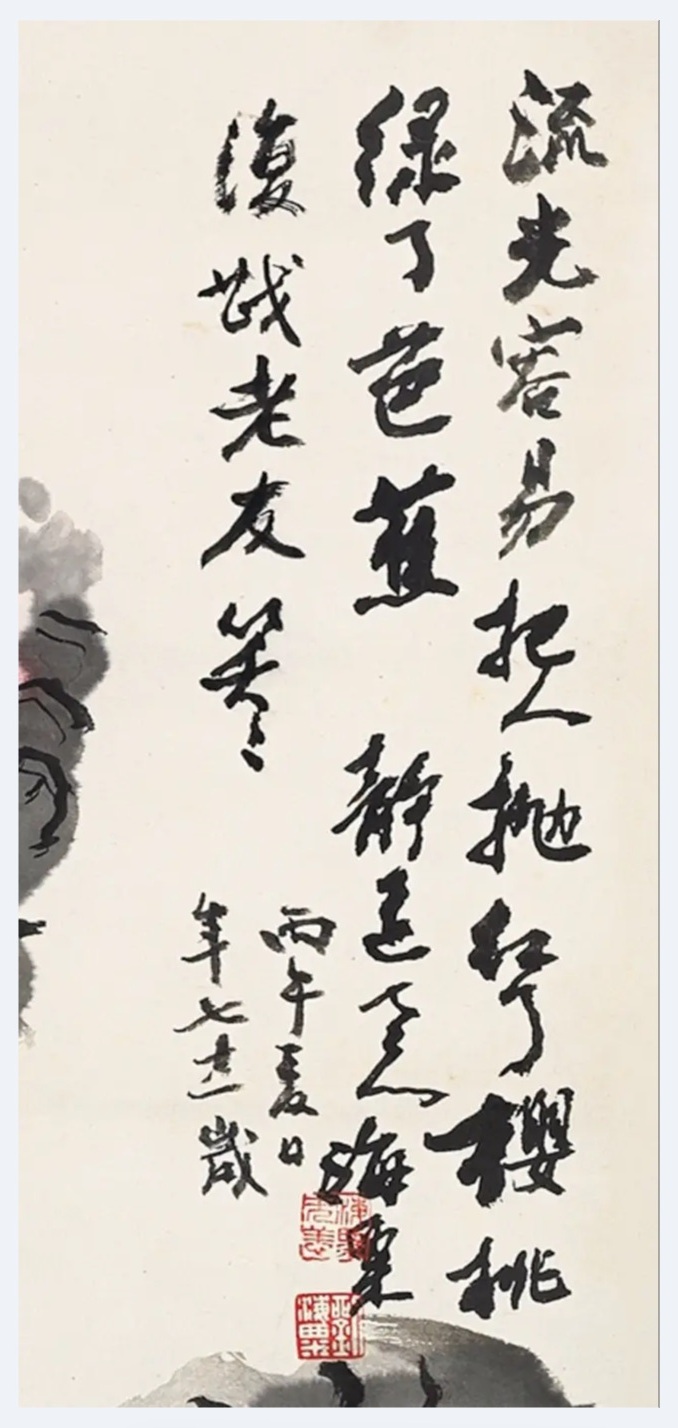 流光容易把人拋紅了櫻桃
綠了芭蕉 靜遠老人海粟
復戡老友笑
丙午夏日
年七十一歲
劉海粟